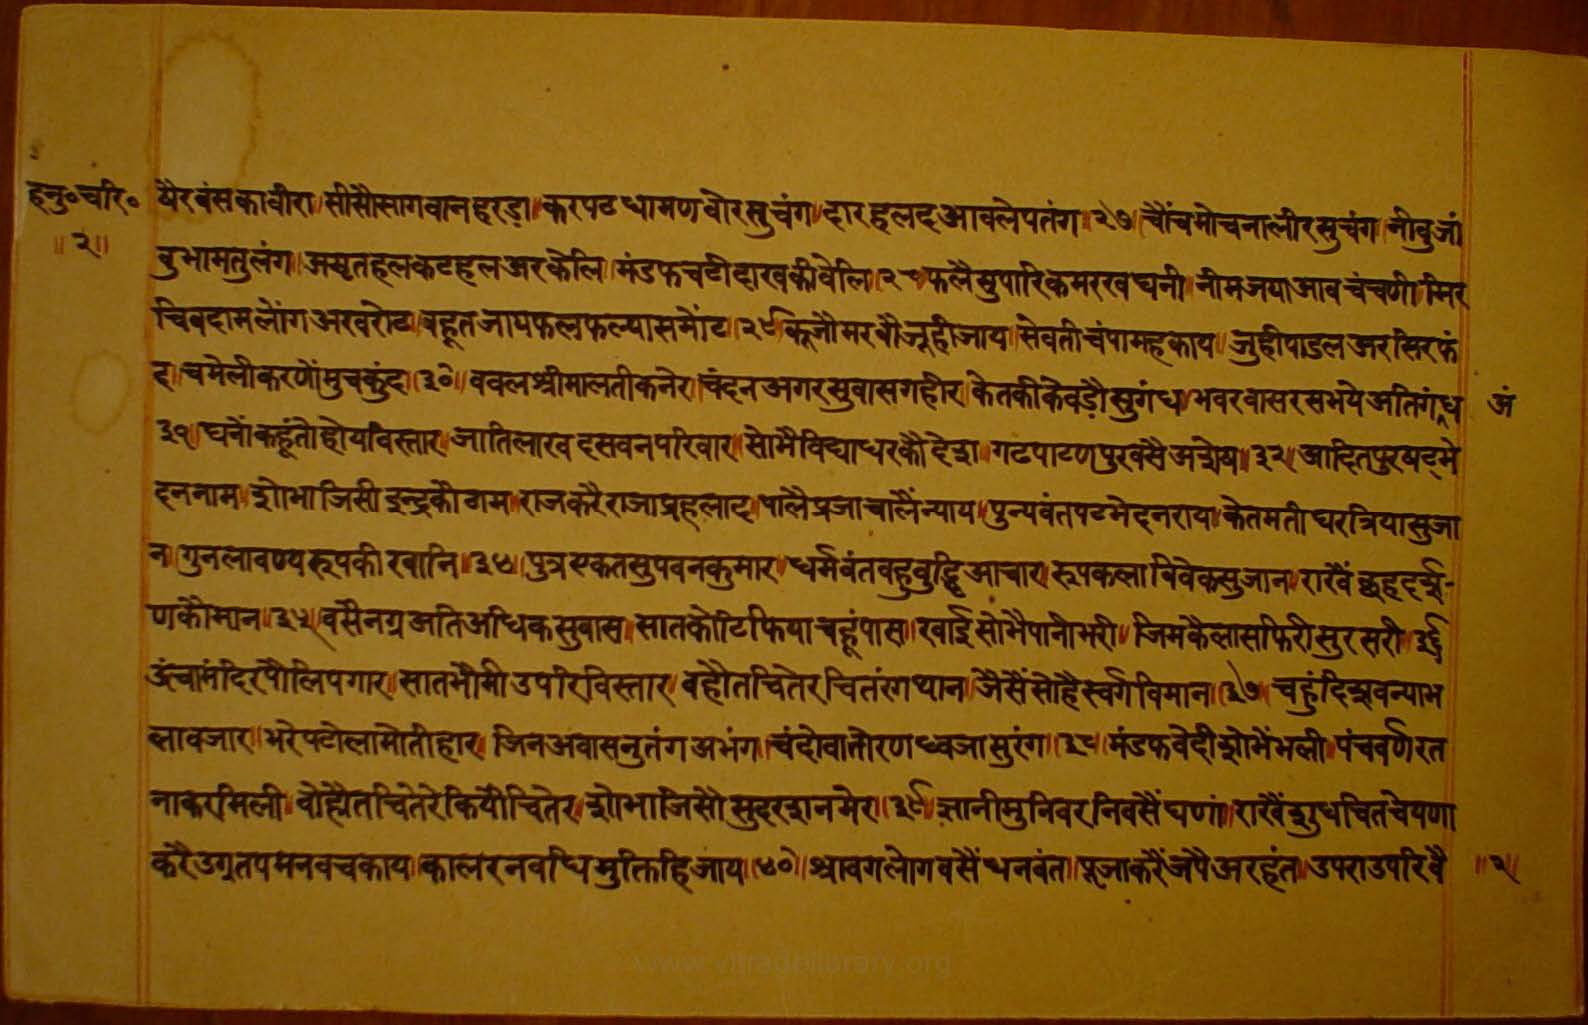 हनु॰चरि॰
॥२॥
षैरबंसकावीरा॥सीसौसागवानहरड़ा॥करपटधामणवोरसुचंग॥दारहलदआवलेपतंग॥२७॥चौंचमोचनालीरसुचंग॥नीबुजां
वुभामतुलंग॥अमृतहलकटहलअरकेलि॥मंडफचटीदाखकीवेलि॥२८॥फलैसुपारिकमरखघनी॥नीमजयाआवचंचणी॥मिर
चिवदामलोंगअखरोट॥बहूतजायफलफल्यासमोंट॥२९॥कूजौमरवौजूहीजाय॥सेवतीचंपामहकाय॥जुहीपाडलअरसिरफं
द॥चमेलीकरणोंमुचकुंद॥३०॥बक्लश्रीमालतीकनेर॥चंदनअगरसुवासगहीर॥केतकीकेवड़ौसुगंध॥भवरवासरसभयेअतिगंध
अं
३१॥घनोंकहूंतोहोयविस्तार॥जातिलाखदसवनपरिवार॥सोभैविद्याधरकौदेश॥गढपाटणपुरवसैअशेय॥३२॥आदितपुरयदमे
दननाम॥शोभाजिसीइन्द्रकौठाम॥राजकरैराजाप्रहलाद॥पालैप्रजाचालैंन्याय॥पुन्यवंतपटभेदनराय॥केतमतीघरत्रियासुजा
न॥गुनलावण्यरूपकीखानि॥३४॥पुत्रएकतसुपवनकुमार॥धर्मवंतवहुबुद्धिआचार॥रूपकलाबिवेकसुजान॥राखैंछहदर्श-
णकौमान॥३५॥वसैनग्रअतिअधिकसुवास॥सातकोटिफियाचहूंपास॥खाईसोभैपानीभरी॥जिमकैलासफिरीसुरसरी॥३६
ऊंचामंदिरपौलिपगार॥सातभौमीउपरिविस्तार॥बहौतचितेरचितरंगथान॥जैसैंसोहैस्वर्गविमान॥३७॥चहुंदिशवन्याभ
लावजार॥भरेपटोलामोतीहार॥जिनअवासनुतंगअभंग॥चंदोवातोरणध्वजासुरंग॥३८॥मंडफवेदीशोभेंभली॥पंचवर्णरत
नाकरमिली॥वोहौतचितेरेकियौचितेर॥शोभाजिसौसुदरशनमेर॥३९॥ज्ञानीमुनिवरनिवसैंघणां॥राखैंशुधचितचेयणा
करैउग्रतपमनवचकाय॥कालरनवधिमुक्तिहिजाय॥४०॥श्रावगलोगवसैंधनवंत॥पूजाकरैंजपैअरहंत॥उपराउपरिवै
॥२॥
www.vitragbiblrary.org